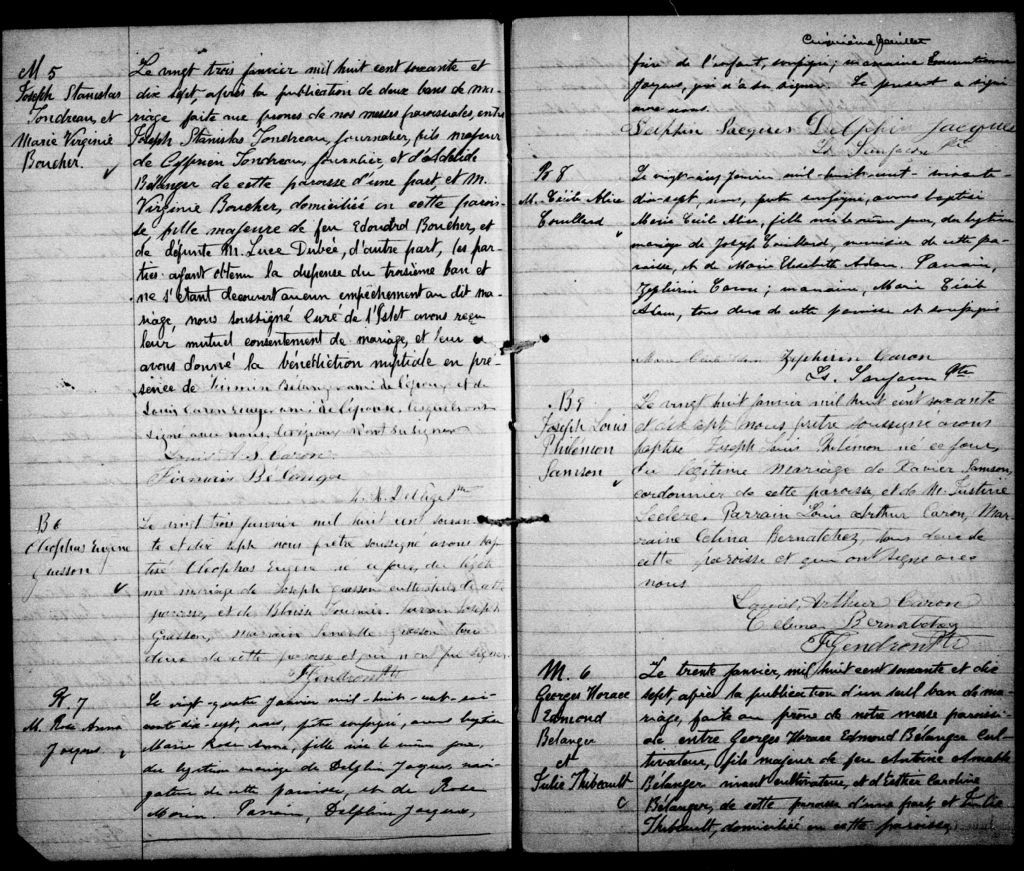 M 5
Joseph Stanislas
Tondreau, et
Marie Virginie
Boucher.
Le vingt trois janvier mil huit cent soixante et
dix sept, après la publication de deux bans de ma-
riage faite aux prônes de nos messes paroissiales, entre
Joseph Stanislas Tondreau, journalier, fils majeur
de Cyprien Tondreau, et d'Adélaide
Bélanger de cette paroisse d'une part, et M.
Virginie Boucher, domiciliée en cette parois-
se fille majeure de feu Edouard Boucher, et
de défunte M. Luce Dubée, d'autre part, les par-
ties ayant obtenu la dispense du troisième ban et
ne s'étant découvert aucun empêchement au dit ma-
riage, nous soussigné Curé de l'Islet avons reçu
leur mutuel consentement de mariage, et leur
avons donné la bénédiction nuptiale en pré-
sence de Firmin Bélanger ami de l'époux, et de
Louis Caron ami de l'épouse, lesquels ont
signé avec nous, les époux n'ont su signer
Louis A. S. Caron
Firmin Bélanger
B 6
Cleophas Eugène
Gasson
Le vingt trois janvier mil huit cent soixan-
te et dix sept nous prêtre soussigné avons bap-
tisé Cléophas Eugène né ce jour, du légiti-
me mariage de Joseph cultivateur de cette
paroisse, et de Fournier. Parrain Joseph
Marraine tous
deux de cette paroisse et qui n'ont pu signer
FGendron Ptr
B. 7
M. Rose Anna
Jacques
Le vingt-quatre Janvier mil-huit-cent-soi-
xante-dix-sept, nous, prêtre soussigné, avons baptisé
Marie Rose Anna, fille née le même jour,
du légitime mariage de Delphin Jacques, navi-
gateur de cette paroisse, et de Rose
Morin. Parrain, Delphin Jacques,
frère de l'enfant, soussigné; marraine
Jacques, qui n'a su signer. Le présent a signé
avec nous.
Delphin Jacques
B 8
M. Cécile Alice
Couillard
Le vingt-cinq Janvier mil-huit-cent-soixante-
dix-sept, nous, prêtre soussigné, avons baptisé
Marie Cécile Alice, fille née le même jour, du légitime
mariage de Joseph Couillard, menuisier de cette pa-
roisse, et de Marie Elisabeth Adam. Parrain,
Zéphirin Caron; marraine, Marie Cécile
Adam, tous deux de cette paroisse et soussignés
Zepherin Caron
B 9
Joseph Louis
Philémon
Samson
Le vingt huit janvier mil huit cent soixante
et dix sept nous prêtre soussigné avons
baptisé Joseph Louis Philémon né ce jour,
du légitime mariage de Xavier Samson,
cordonnier de cette paroisse, et de M. Justine
Leclerc. Parrain Louis Arthur Caron, Mar-
raine Celina Bernatchez tous deux de
cette paroisse et qui ont signé avec
nous
Louis Arthur Caron
Celina Bernatchez
FGendron Ptr
M. 6
Georges Horace
Edmond
Bélanger
et
Julie Thibeault
Le trente janvier, mil huit cent soixante et dix
sept, après la publication d'un seul ban de ma-
riage, faite au prône de notre messe paroissi-
ale entre Georges Horace Edmond Bélanger cul-
tivateur, fils majeur de feu Antoine Amable
Bélanger vivant cultivateur, et d'Esther Caroline
Bélanger, de cette paroisse d'une part, et Julie
Thibeault, domiciliée en cette paroisse,